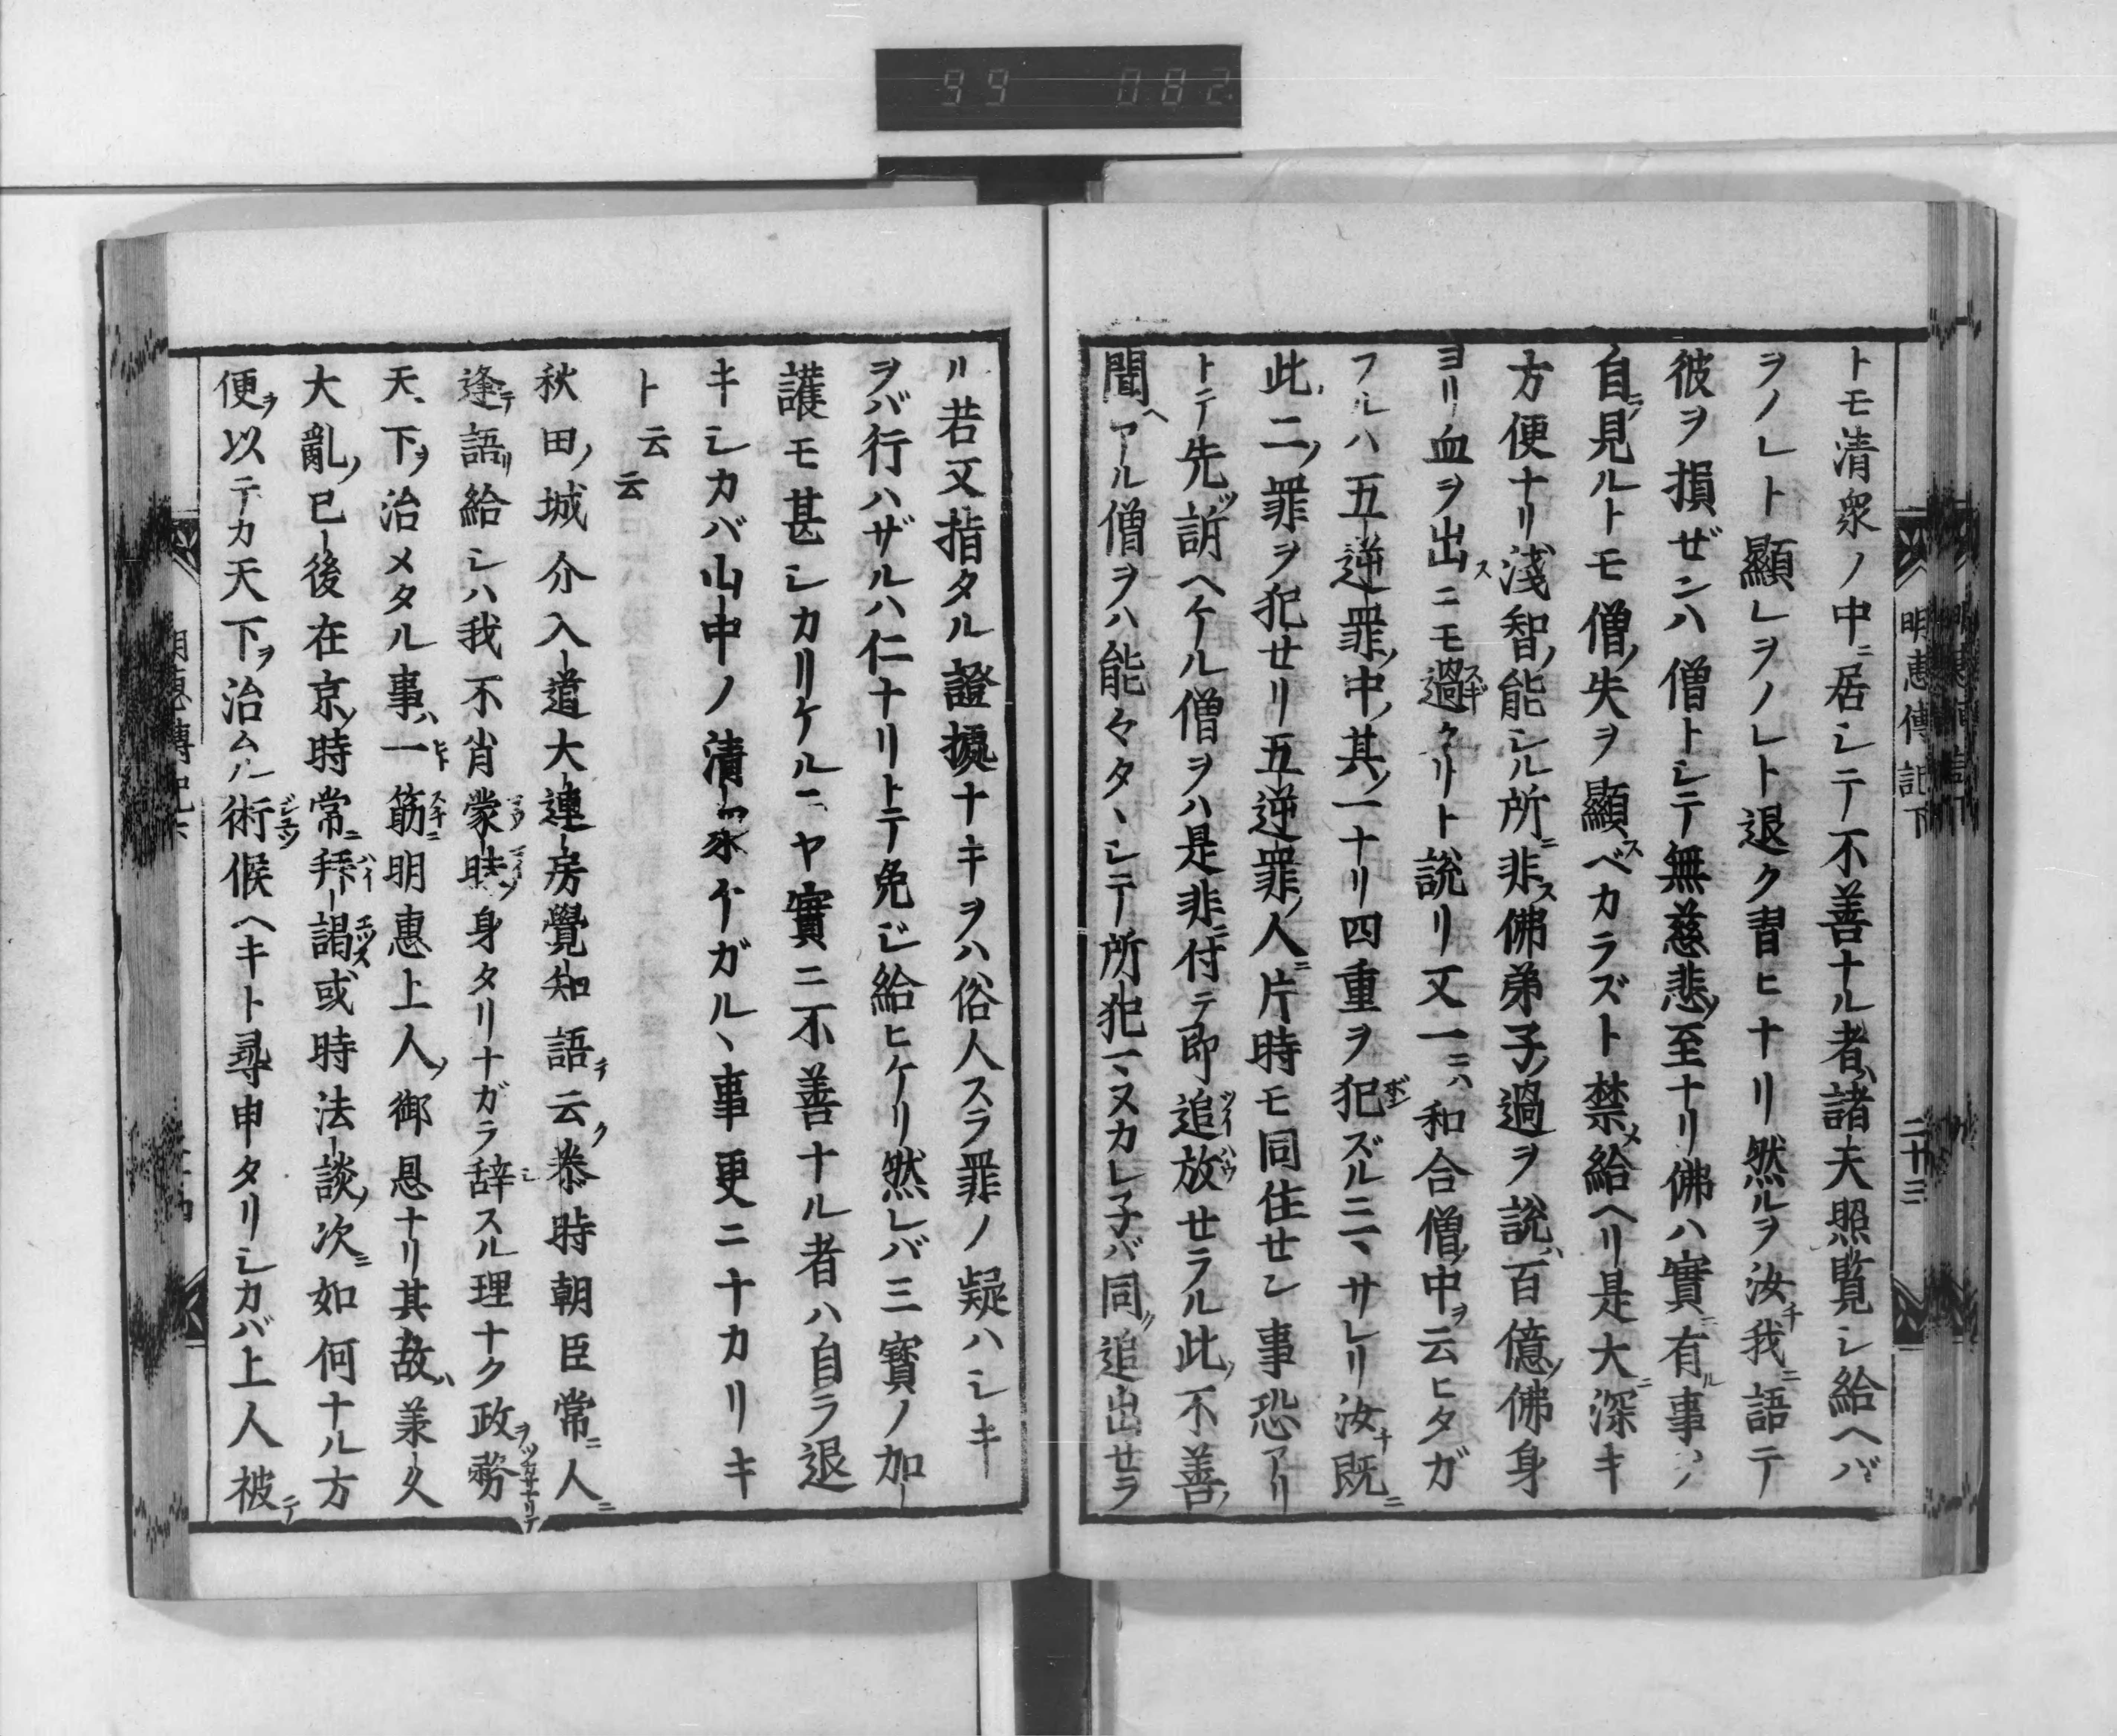 99 082
トモ清衆ノ中ニ居シテ不善ナル者ハ諸夫照覧シ給ヘバ
ヲノレト顯レヲノレト退ク習ヒナリ然ルヲ汝チ我ニ語テ
彼ヲ損ゼンハ僧トシテ無慈悲ノ至ナリ佛ハ實ニ有ル事ノ
自ラ見ルトモ僧ノ失ヲ顯スベカラズト禁メ給ヘリ是大ニ深キ
方便ナリ淺智ノ能シル所ニ非ス佛弟子ノ過ヲ說ハ百億ノ佛身
ヨリ血ヲ出スニモ過スギタリト說リ又一ニハ和合僧ノ中ヲ云ヒタガ
フルハ五逆罪ノ中ノ其ノ一ナリ四重ヲ犯ボンズルニハサレリ汝チ既ニ
此ノ二ノ罪ヲ犯セリ五逆罪ノ人ニ片時モ同住セン事恐アリ
トテ先ツ訴ヘケル僧ヲハ是非ニ付テ即追放ツイハウセラル此ノ不善ノ
聞ヘアル僧ヲハ能々タヽシテ所犯マヌカレ子バ同ク追出セラ
明惠傳記下 二十三
ル若又指タル證據ナキヲハ俗人スラ罪ノ疑ハシキ
ヲバ行ハザルハ仁ナリトテ免ジ給ヒケリ然レバ三寶ノ加
護モ甚シカリケルニヤ實ニ不善ナル者ハ自ラ退
キシカバ山中ノ清衆イガルヽ事更ニナカリキ
ト云云
秋田ノ城介入道大連房覺知語テ云ク泰時朝臣常ニ人ニ
逢テ語リ給シハ我不肖蒙時マウマイノ身タリナガラ辞シスル理ナク政務ヲツカサトリテ
天下ヲ治メタル事ハ一ヒト筋スチニ明惠上人ノ御恩ナリ其故ハ兼久
大亂ノ已後在京ノ時常ニ拜ハイ謁エツス或時法談ノ次ニ如何ナル方
便ヲ以テカ天下ヲ治ムル術ジユツ候ヘキト尋申タリシカバ上人被テ